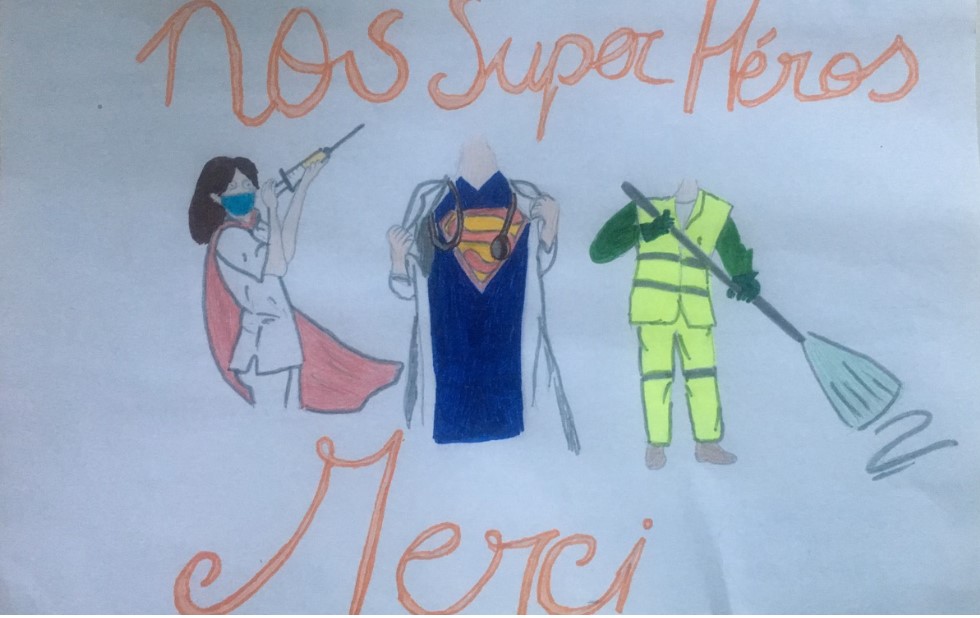 Nos Super Héros
Merci